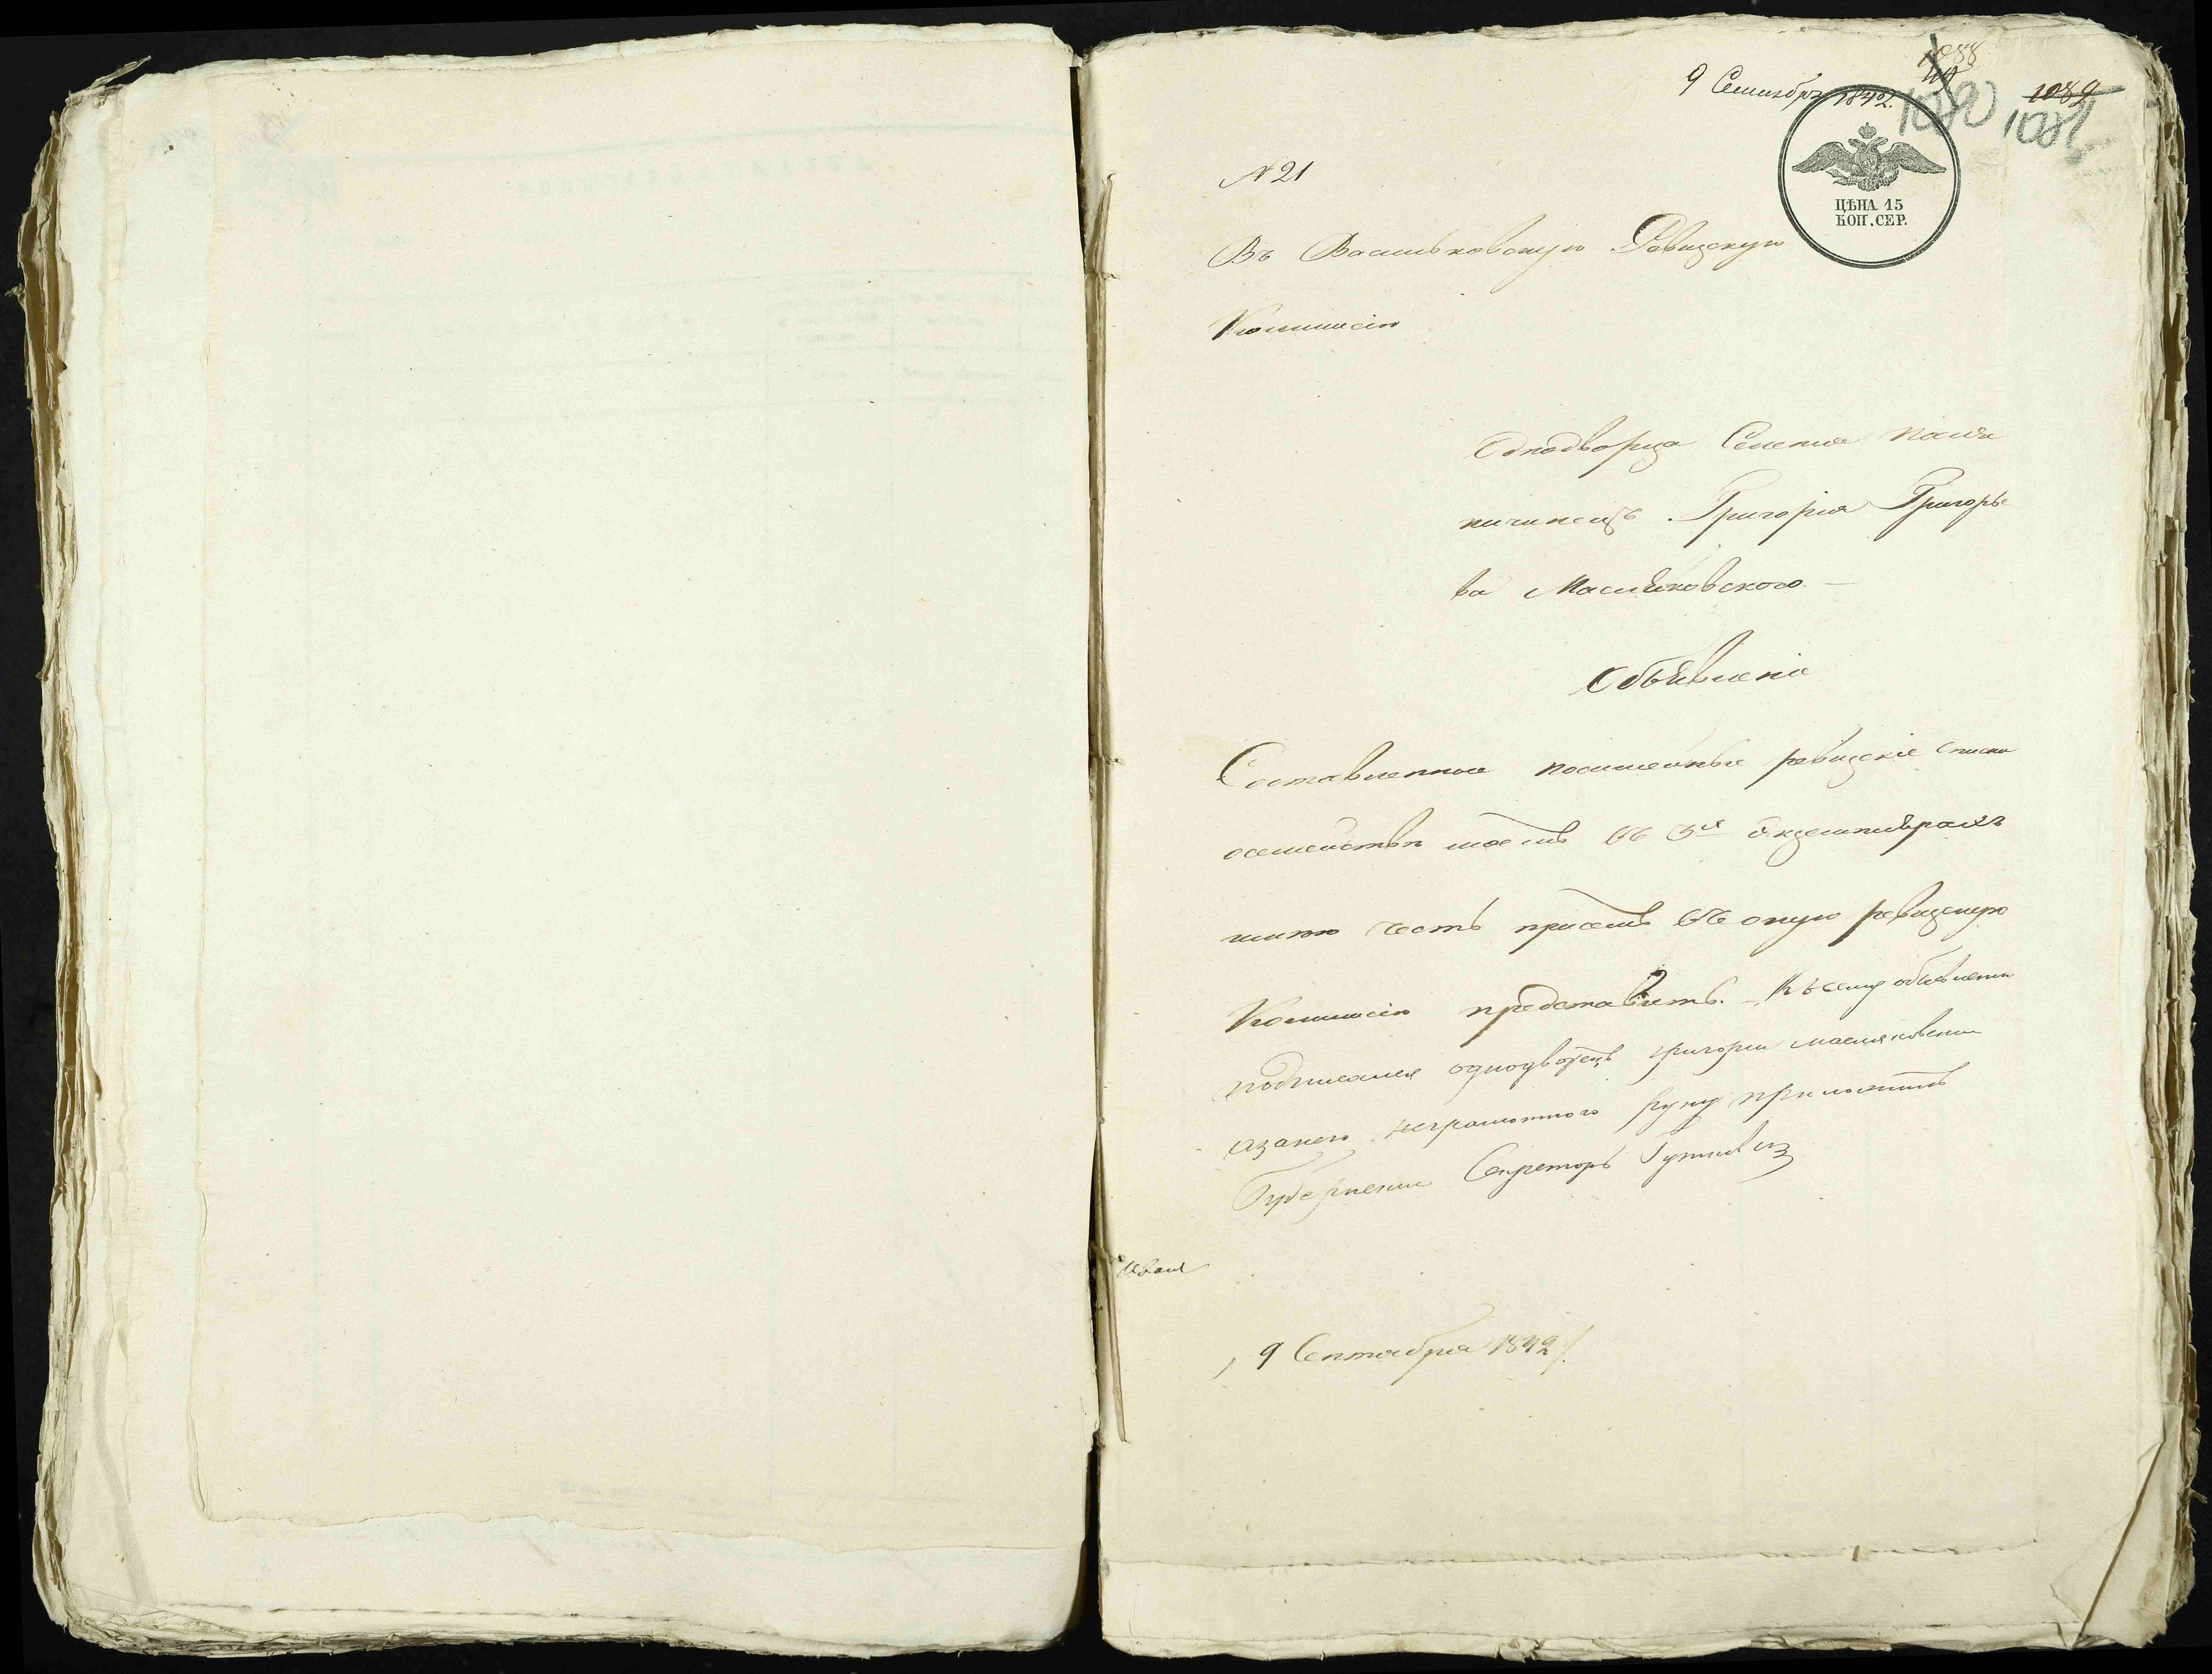 1088
9 Сентября 1842.
1090
1089
N 21
ЦѢНА 15
КОП. СЕР.
Въ Васильковскую Ревизскую
Коммисію
Однодворца Селенія
Григорія Григорье
ва Масляковского
Объявленіе
Составленные посемейные ревизскіе списки
о семействѣ моемъ въ 3хъ экземплярахъ
имѣю честь присемъ въ оную ревизскую
Коммисію представить. Къ сему объявленію
подписался однодворецъ григорій масляковскій
а за него неграмотного руку приложилъ
Губернскій Секретарь
9 Сентября 1842 г.